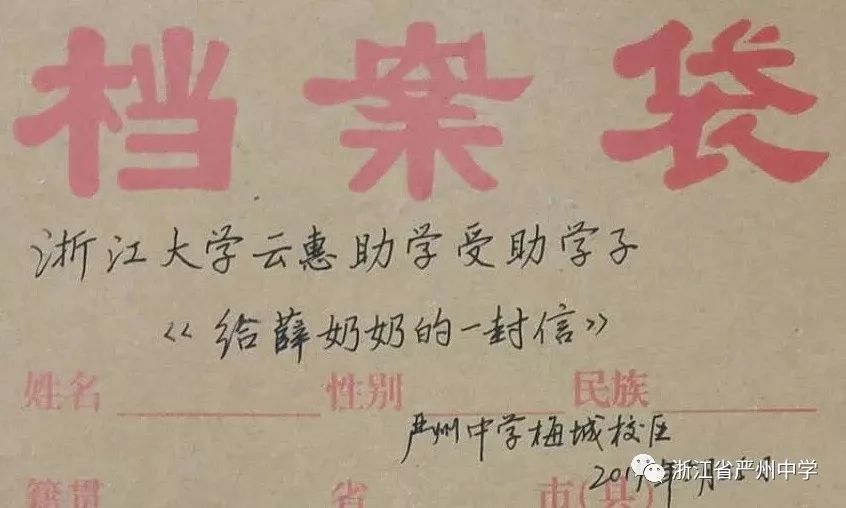 档案袋
浙江大学云惠助学受助学子
《给薛奶奶的一封信》
姓名 性别 民族
严州中学梅城校区
浙江省严州中学
籍贯 省 市(县)